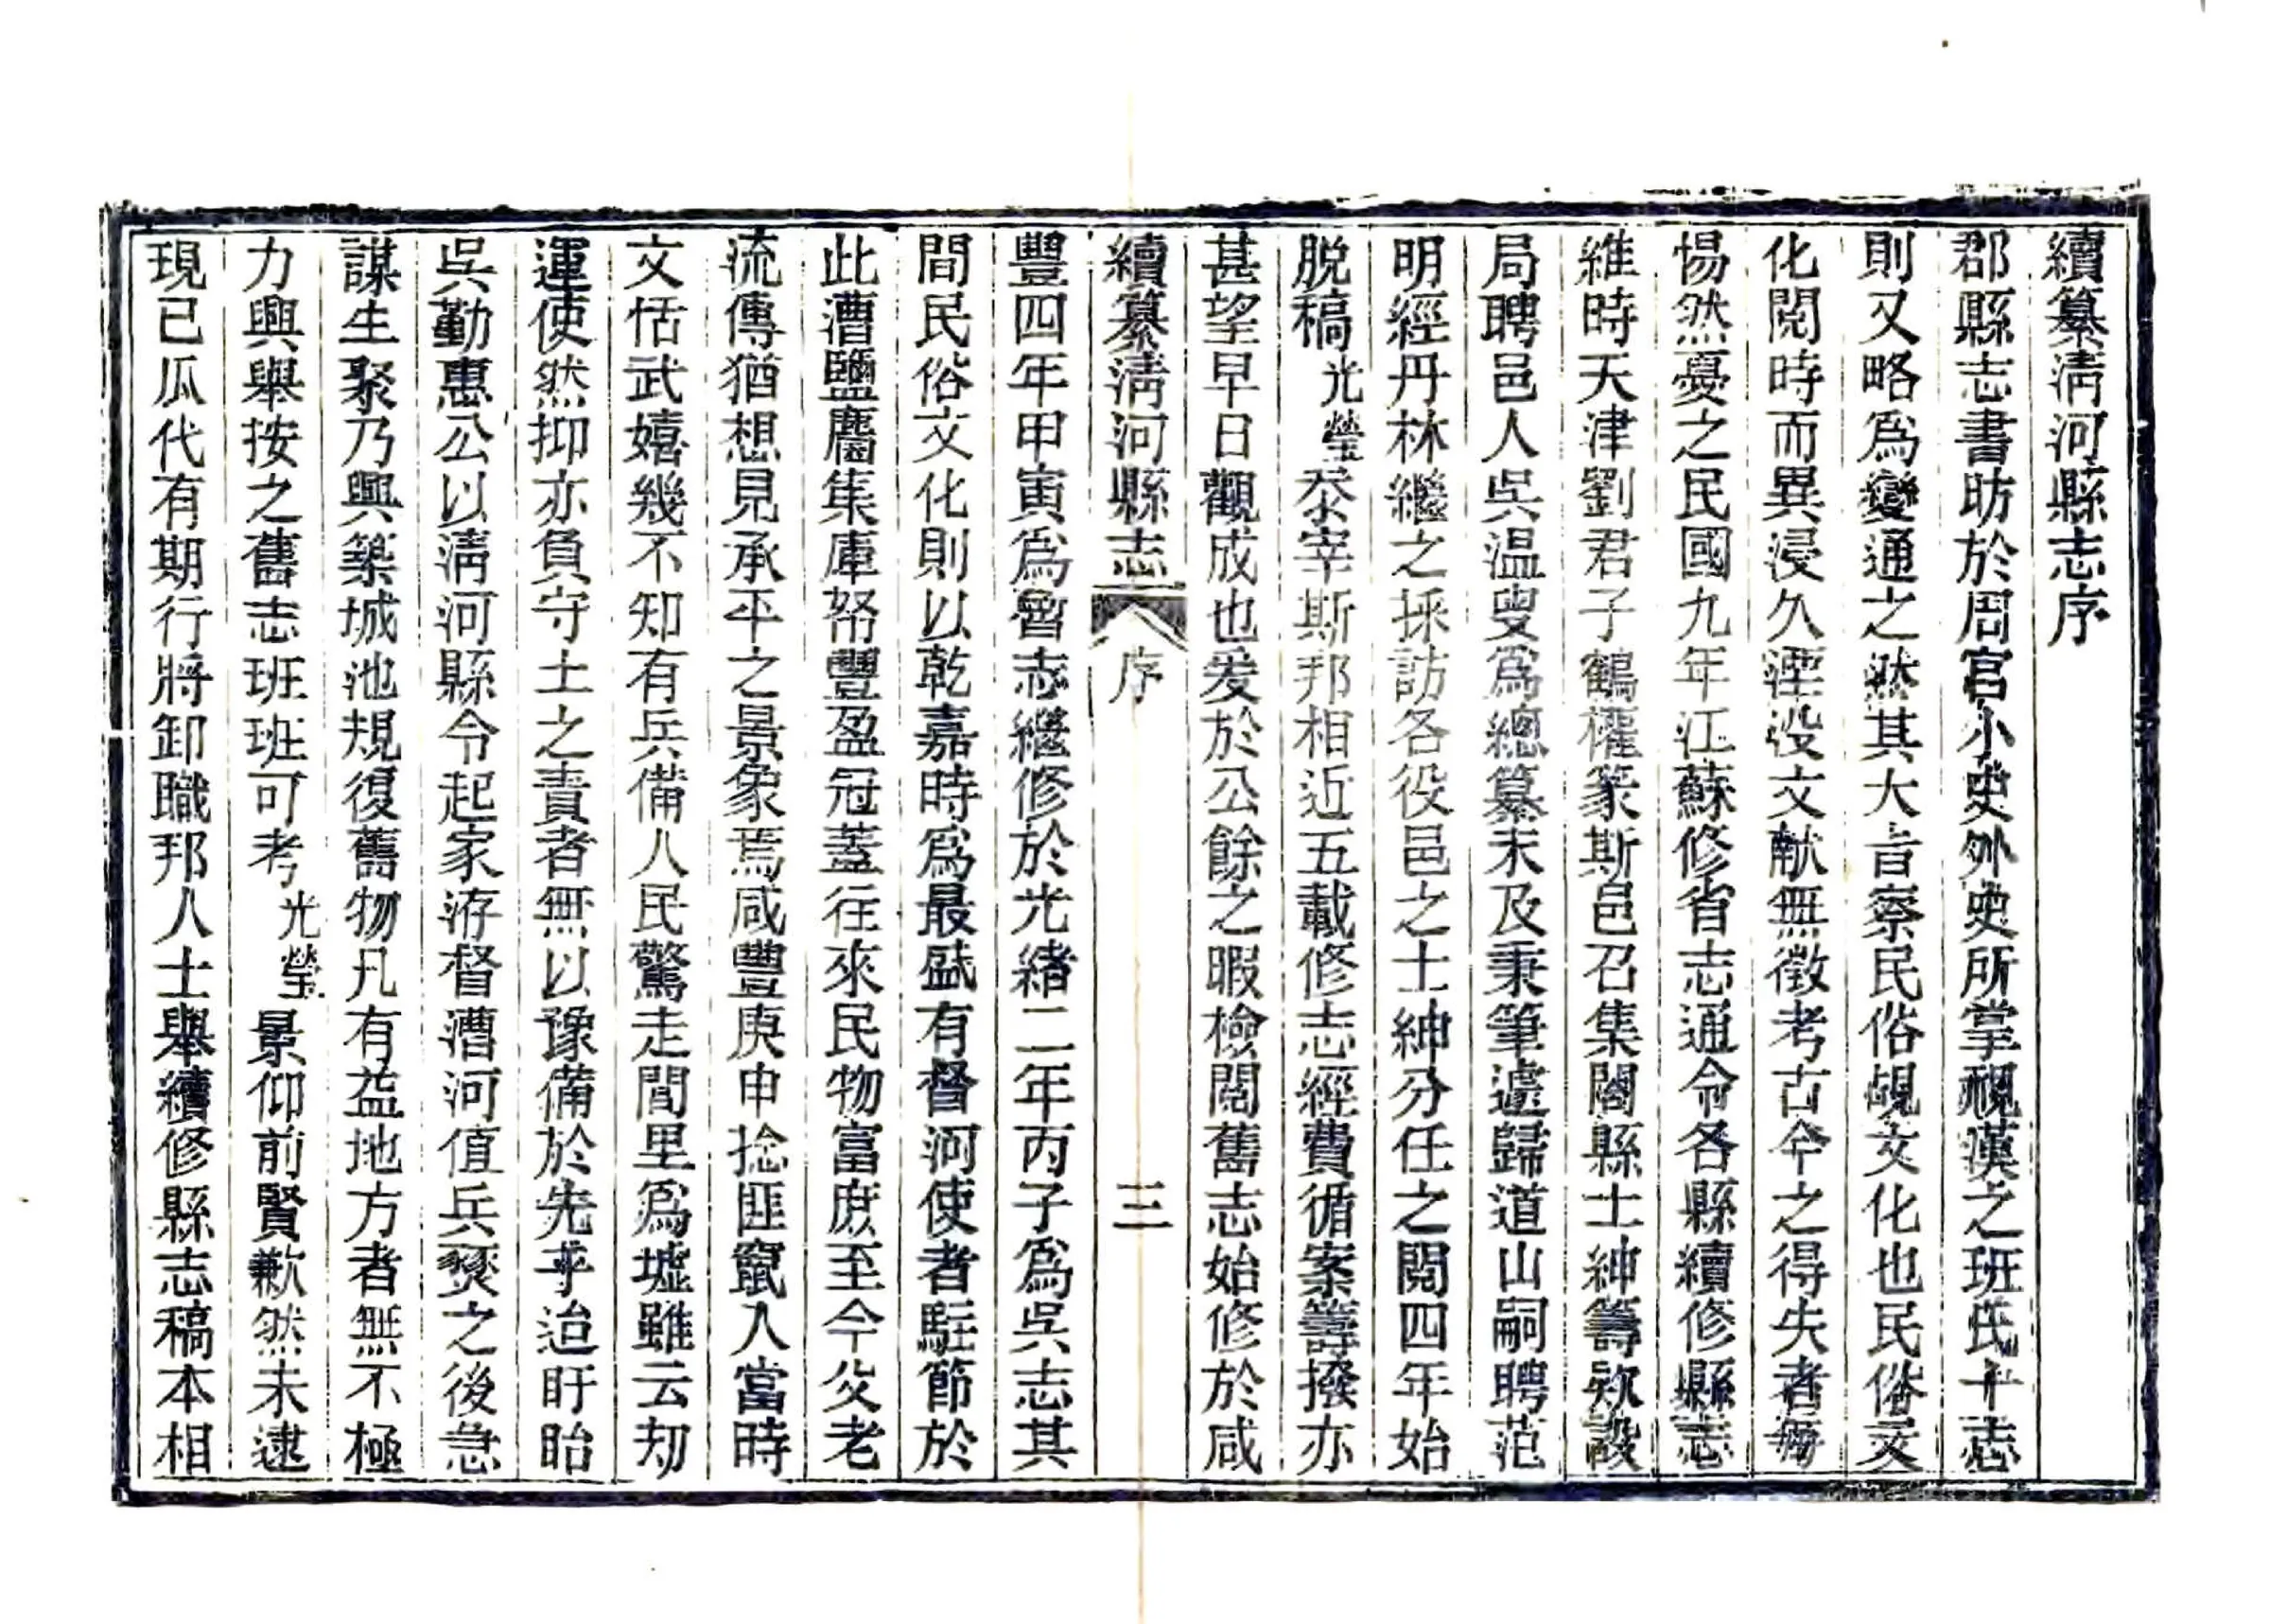 續纂淸河縣志序
郡縣志書昉於周官小史外史所掌視漢之班氏十志
則又略爲變通之然其大旨察民俗覘文化也民俗文
化閱時而異浸久湮没文献無徵考古今之得失者每
惕然憂之民國九年江蘇修省志通令各縣續修縣志
維時天津劉君子鶴權篆斯邑召集闔縣士紳籌欵設
局聘邑人吳温叟爲總纂未及秉筆遽歸道山嗣聘范
明經丹林繼之採訪各役邑之士紳分任之閱四年始
脫稿光瑩忝宰斯邦相近五載修志經費循案籌撥亦
甚望早日觀成也爰於公餘之暇檢閱舊志始修於咸
續纂淸河縣志 序 三
豐四年甲寅爲魯志繼修於光緖二年丙子爲吳志其
間民俗文化則以乾嘉時爲最盛有督河使者駐節於
此漕鹽麕集庫帑豐盈冠蓋往來民物富庶至今父老
流傳猶想見承平之景象焉咸豐庚申捻匪竄入當時
文恬武嬉幾不知有兵備人民驚走閭里爲墟雖云刼
運使然抑亦負守土之責者無以豫備於先乎迨盱眙
吳勤惠公以淸河縣令起家洊督漕河值兵燹之後急
謀生聚乃興築城池規復舊物凡有益地方者無不極
力興舉按之舊志班班可考光瑩景仰前賢歉然未逮
現已瓜代有期行將卸職邦人士舉續修縣志稿本相